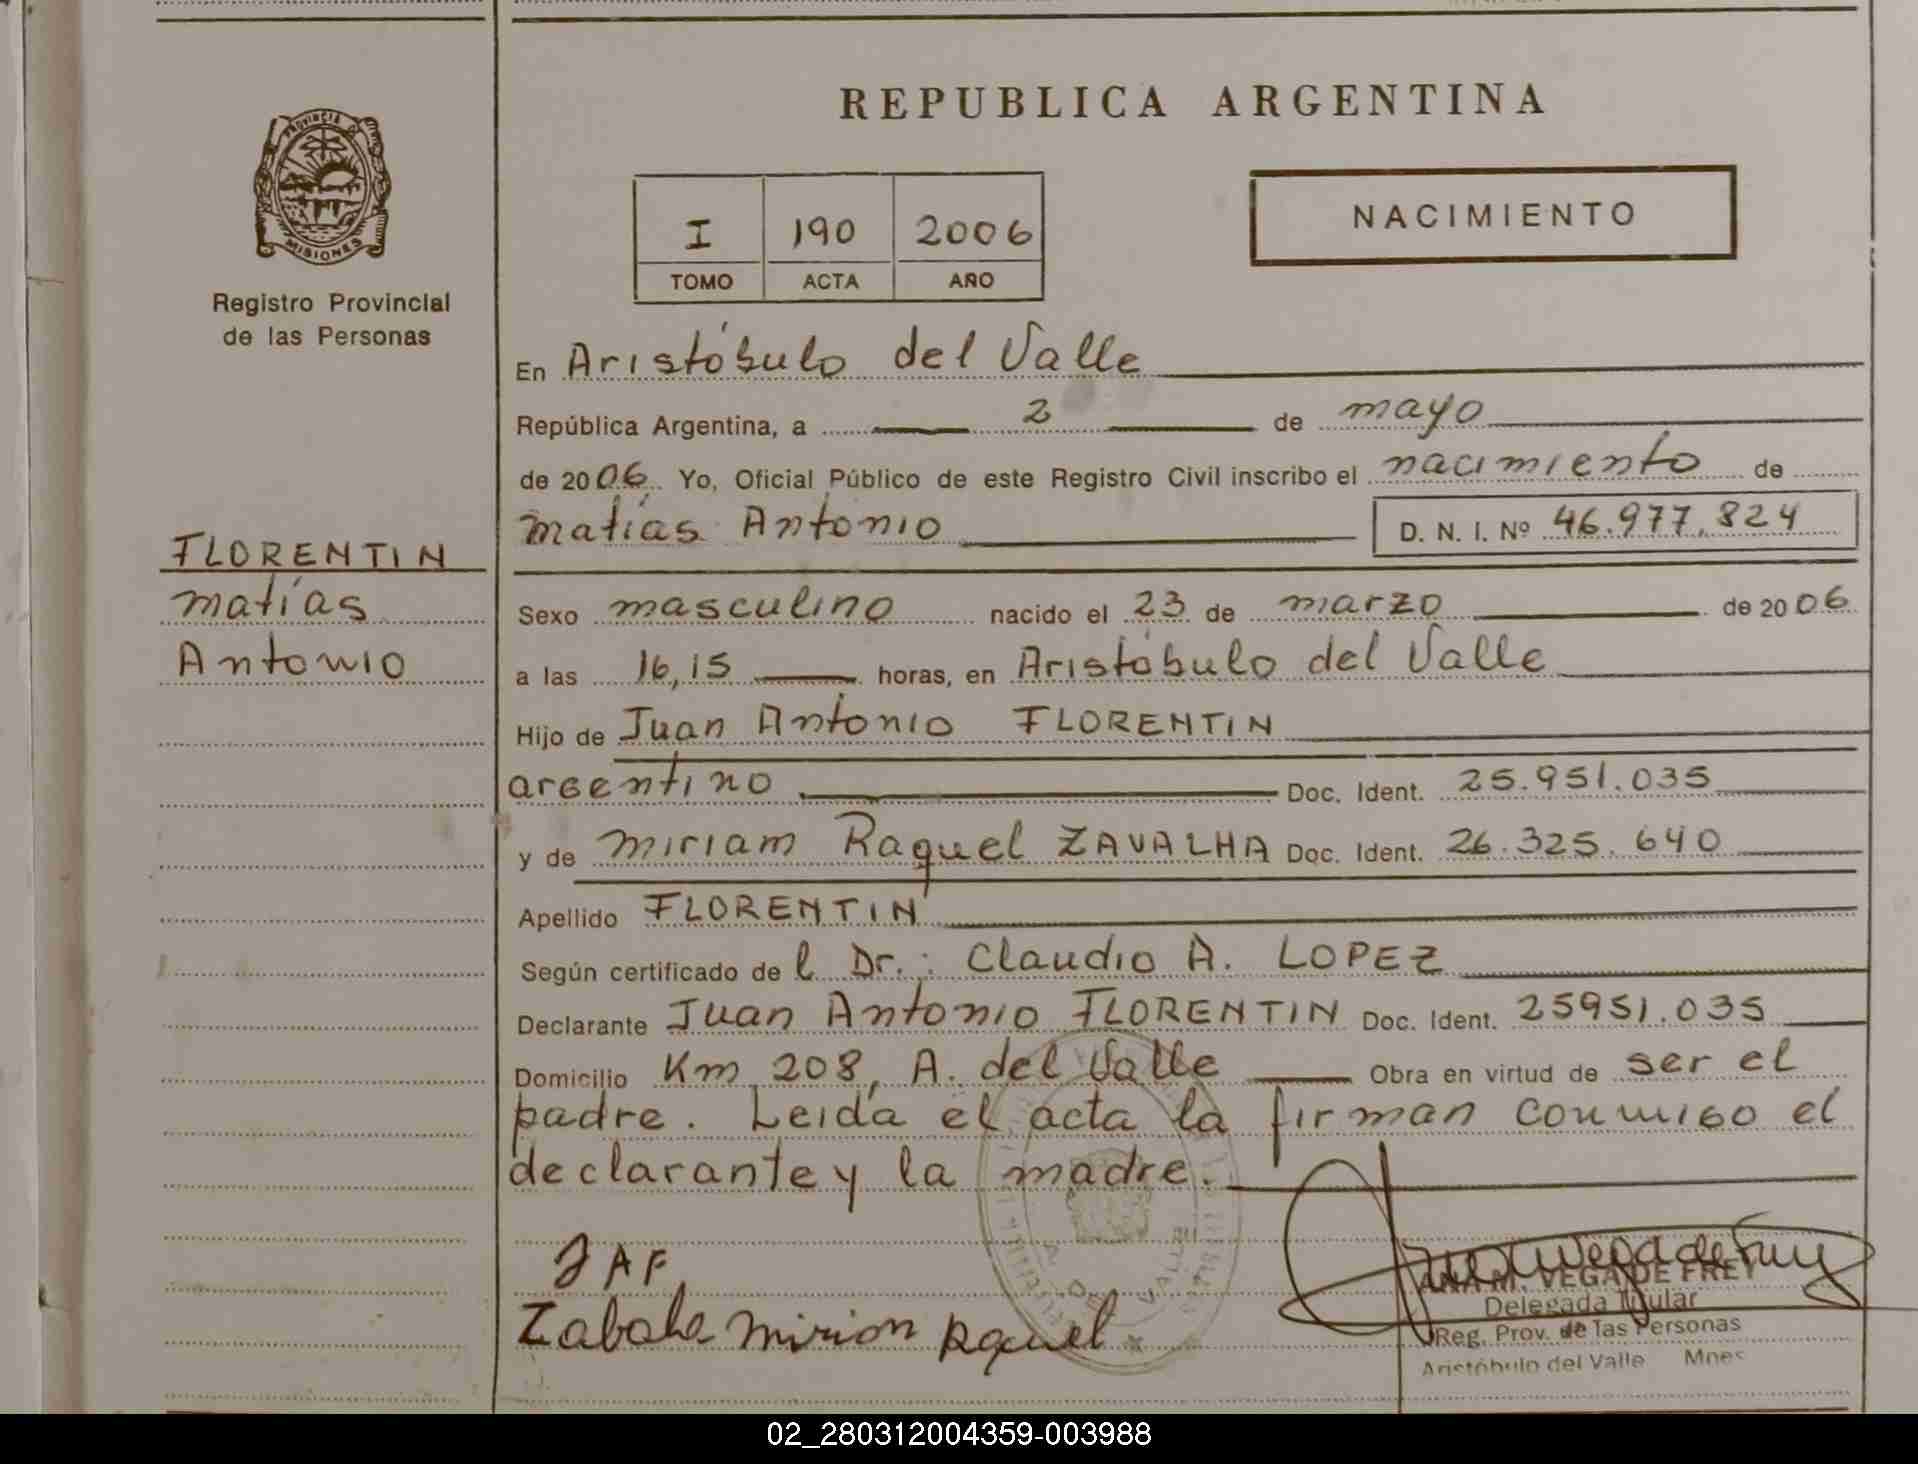 REPUBLICA ARGENTINA
PROVINCIA DE
MISIONES
Registro Provincial
de las Personas
I 190 2006
TOMO ACTA AÑO
NACIMIENTO
En Aristóbulo del Valle
República Argentina, a 2 de mayo
de 2006. Yo, Oficial Público de este Registro Civil inscribo el nacimiento de
Matías Antonio D. N. I. Nº 46.977.824
FLORENTIN
Matías
Antonio
Sexo masculino nacido el 23 de marzo de 2006.
a las 16,15 horas, en Aristóbulo del Valle
Hijo de Juan Antonio FLORENTIN
argentino Doc. Ident. 25.951.035
y de Miriam Raquel ZAVALHA Doc. Ident. 26.325.640
Apellido FLORENTIN
Según certificado de l Dr.: Claudio A. LOPEZ
Declarante Juan Antonio FLORENTIN Doc. Ident. 25951.035
Domicilio Km 208, A. del Valle Obra en virtud de ser el
padre. Leída el acta la firman conmigo el
declarante y la madre.
JAF
Miriam Raquel
ANA M. VEGA DE FREY
Delegada Titular
Reg. Prov. de las Personas
Aristóbulo del Valle Mnes
02_280312004359-003988